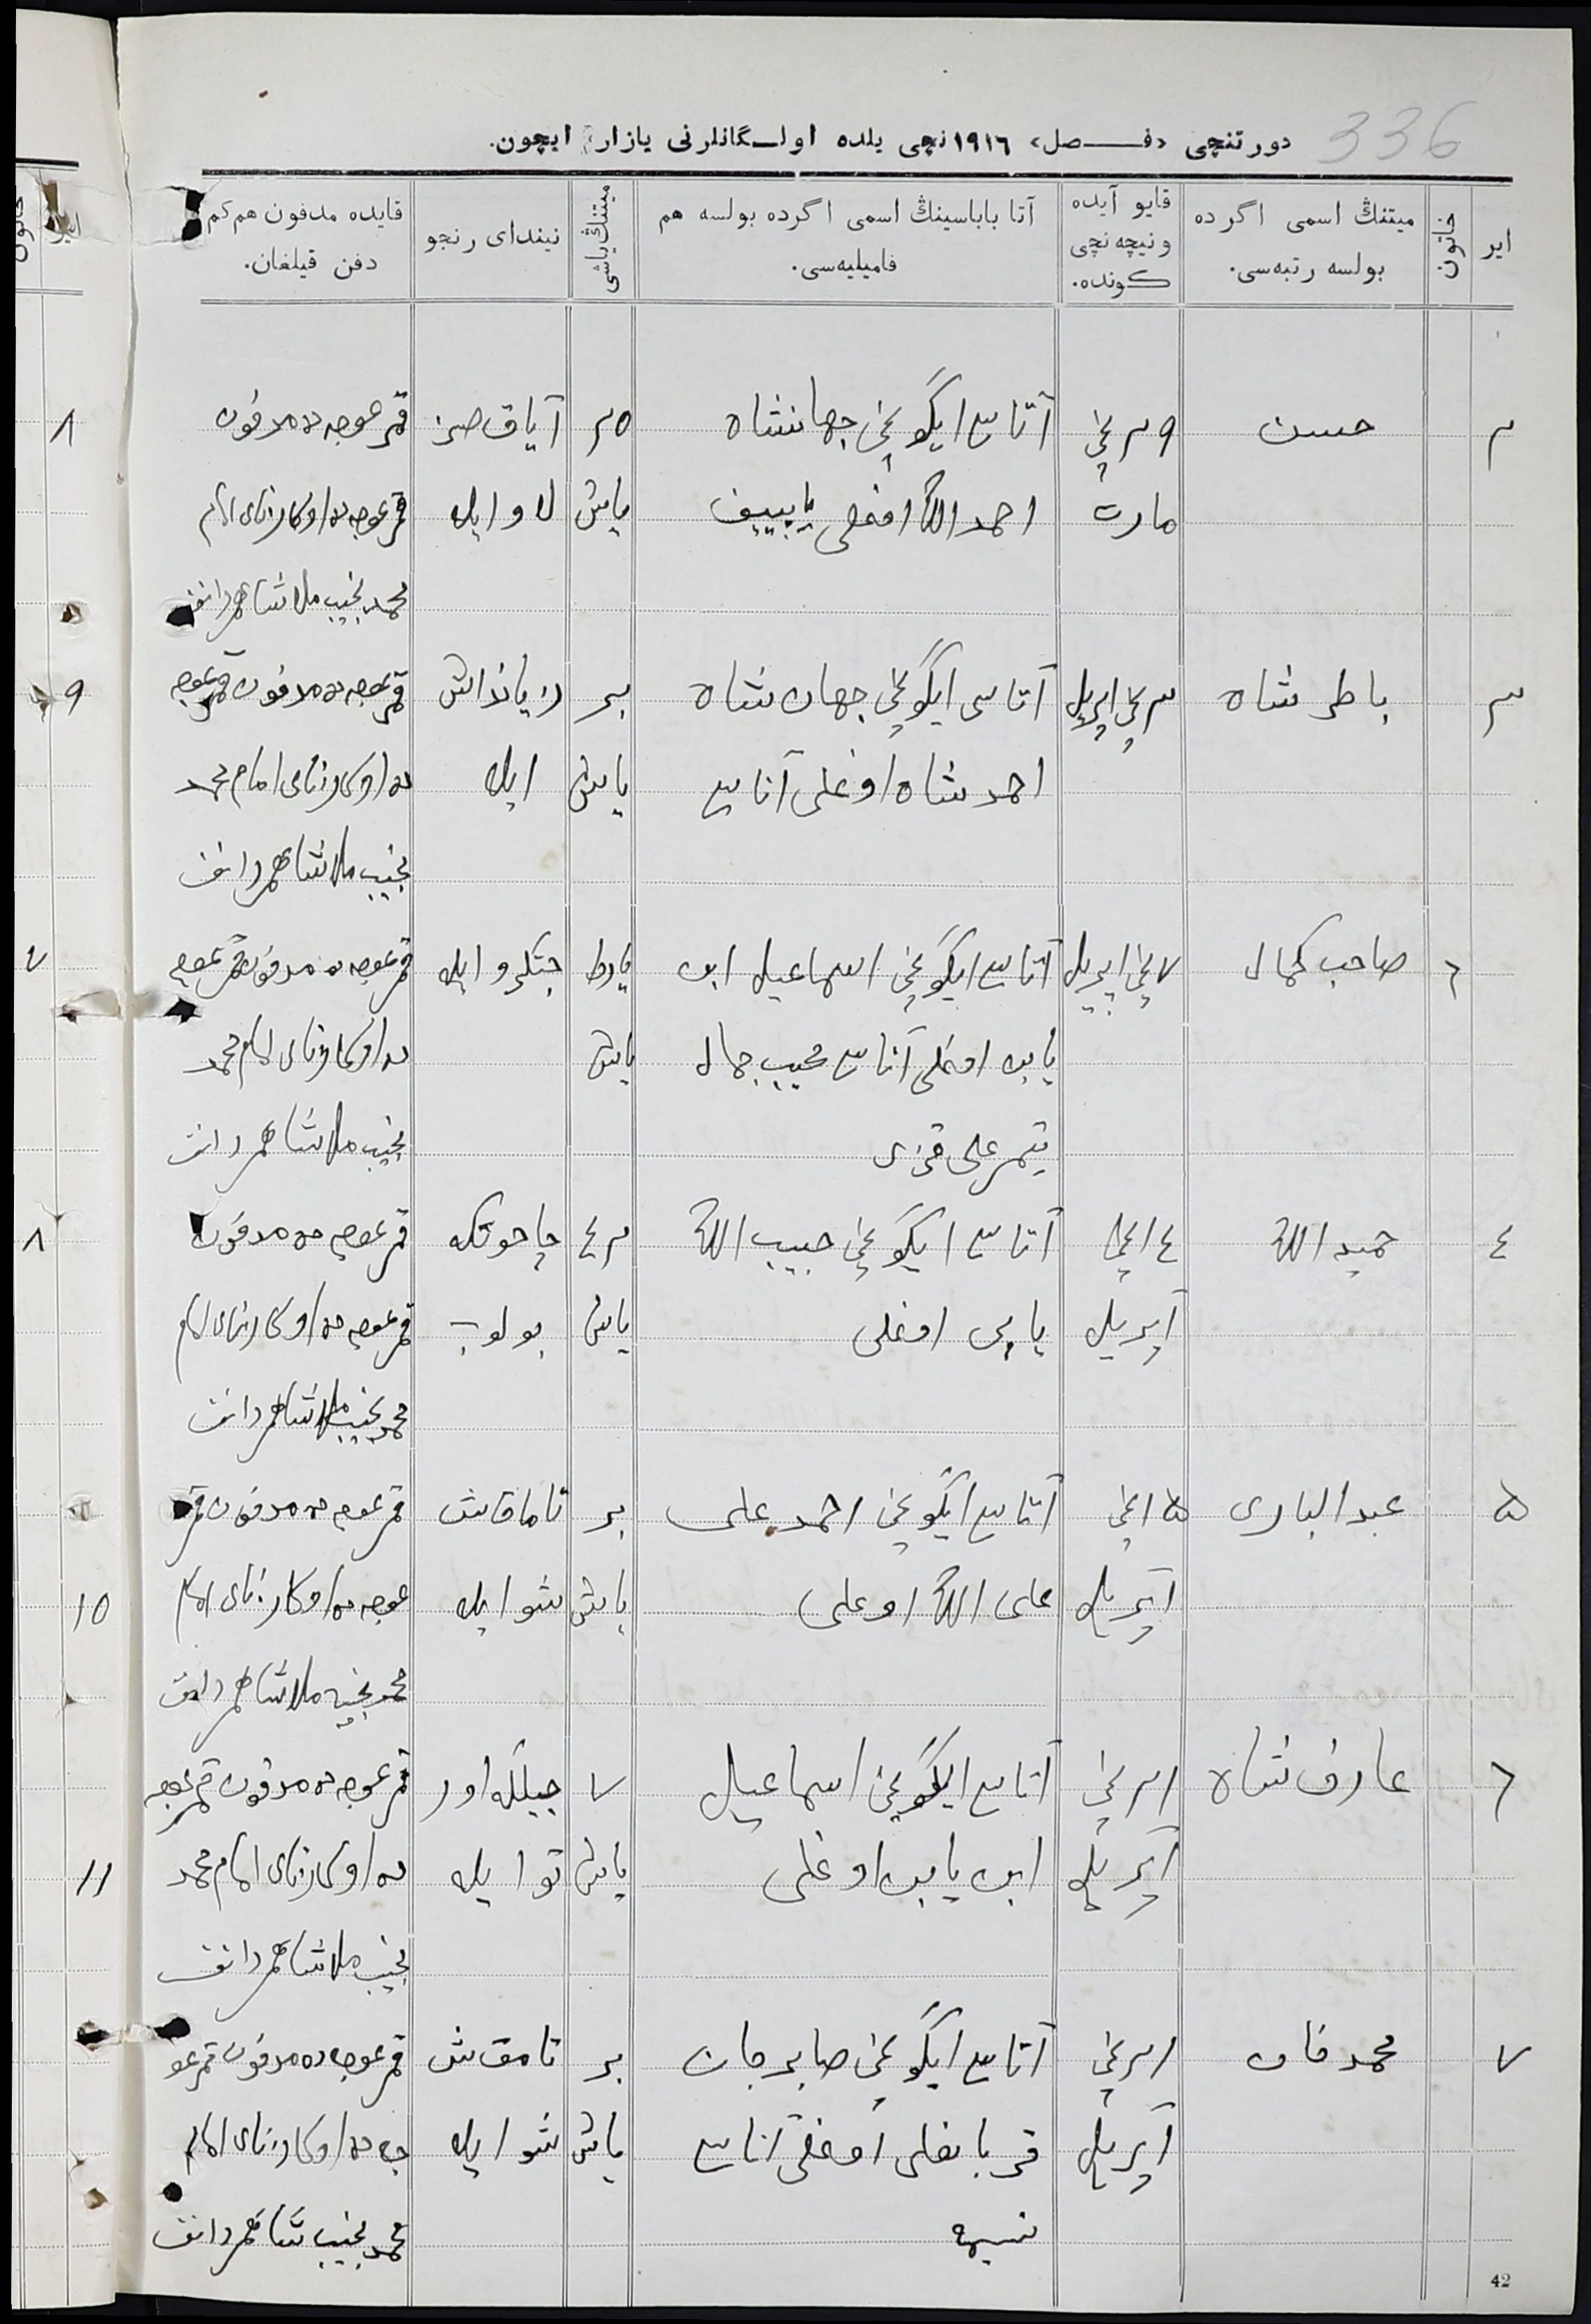 336
دورتنچی «فـــصل» ١٩١٦ نچی یلده اولـــگانلرنی یازار ایچون.
ایر
خاتون
میتنڭ اسمی اگرده
بولسه رتبه‌سی.
قایو آیده
ونیچه نچی
کونده.
آتا باباسینڭ اسمی اگرده بولسه هم
فامیلیه‌سی.
میتنڭ یاشی
نیندای رنجو
قایده مدفون هم کم
دفن قیلغان.
٢
حسن
٢٩ نچی
مارت
آتاسی ایگونچی جهانشاه
احمد الله اوغلی یابییف
٢٥
یاش
آیاق
قمرعوجه ده مدفون
قمرعوجه ده اوکازنای امام
محمد نجیب ملا شاهمردانف
٣
باطرشاه
٣ نچی اپریل
آتاسی ایگونچی جهان شاه
احمد شاه اوغلی آناسی
بر
یاش
ایله
قمرعوجه ده مدفون قمرعوجه
ده اوکازنای امام محمد
نجیب ملا شاهمردانف
٢
صاحب کمال
٧ نچی اپریل
آتاسی ایگونچی اسماعیل ابن
یابی اوغلی آناسی محیب جمال
یتمرعلی قزی
یاش
ایله
قمرعوجه ده مدفون قمرعوجه
ده اوکازنای امام محمد
نجیب ملا شاهمردانف
٤
حمید الله
١٤ نچی
اپریل
آتاسی ایگونچی حبیب الله
یابی اوغلی
٤٢
یاش
چاحوتکه
بولوب
قمرعوجه ده مدفون
قمرعوجه ده اوکازنای امام
محمد نجیب ملا شاهمردانف
٥
عبد الباری
١٥ نچی
اپریل
آتاسی ایگونچی احمد علی
علی الله اوغلی
بر
یاش
تاماقاش
شو ایله
قمرعوجه ده مدفون قمر
عوجه ده اوکازنای امام
محمد نجیب ملا شاهمردانف
٦
عارف شاه
٢١ نچی
اپریل
آتاسی ایگونچی اسماعیل
ابن یابی اوغلی
٧
یاش
ایله
قمرعوجه ده مدفون قمرعوجه
ده اوکازنای امام محمد
نجیب ملا شاهمردانف
٧
محمد خان
٢١ نچی
اپریل
آتاسی ایگونچی صابر جان
قربانعلی اوغلی آناسی
نسیمه
بر
یاش
تامقش
شو ایله
قمرعوجه ده مدفون قمرعو
جه ده اوکازنای امام
محمد نجیب شاهمردانف
42
٨
٩
٨
١٥
١١